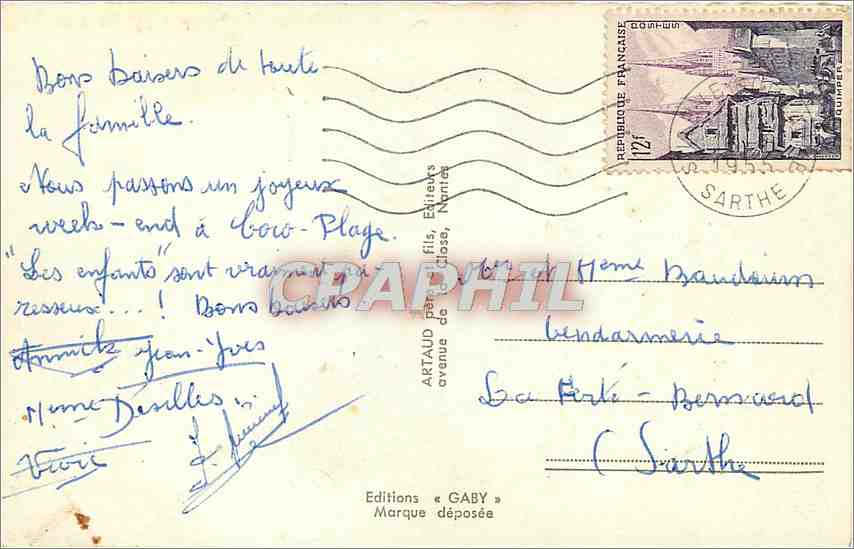 Bons baisers de toute
la famille.
Nous passons un joyeux
week-end à Coco-Plage.
"Les enfants" sont vraiment pa-
resseux...! Bons baisers
Annick Jean-Yves
Mme Deselles
ARTAUD père et fils, Editeurs
avenue de la Close, Nantes
Editions « GABY »
Marque déposée
REPUBLIQUE FRANÇAISE
POSTES
QUIMPER
12F
1955
SARTHE
CPAPHIL
Mr et Mme Baudouin
Gendarmerie
La Ferté-Bernard
(Sarthe